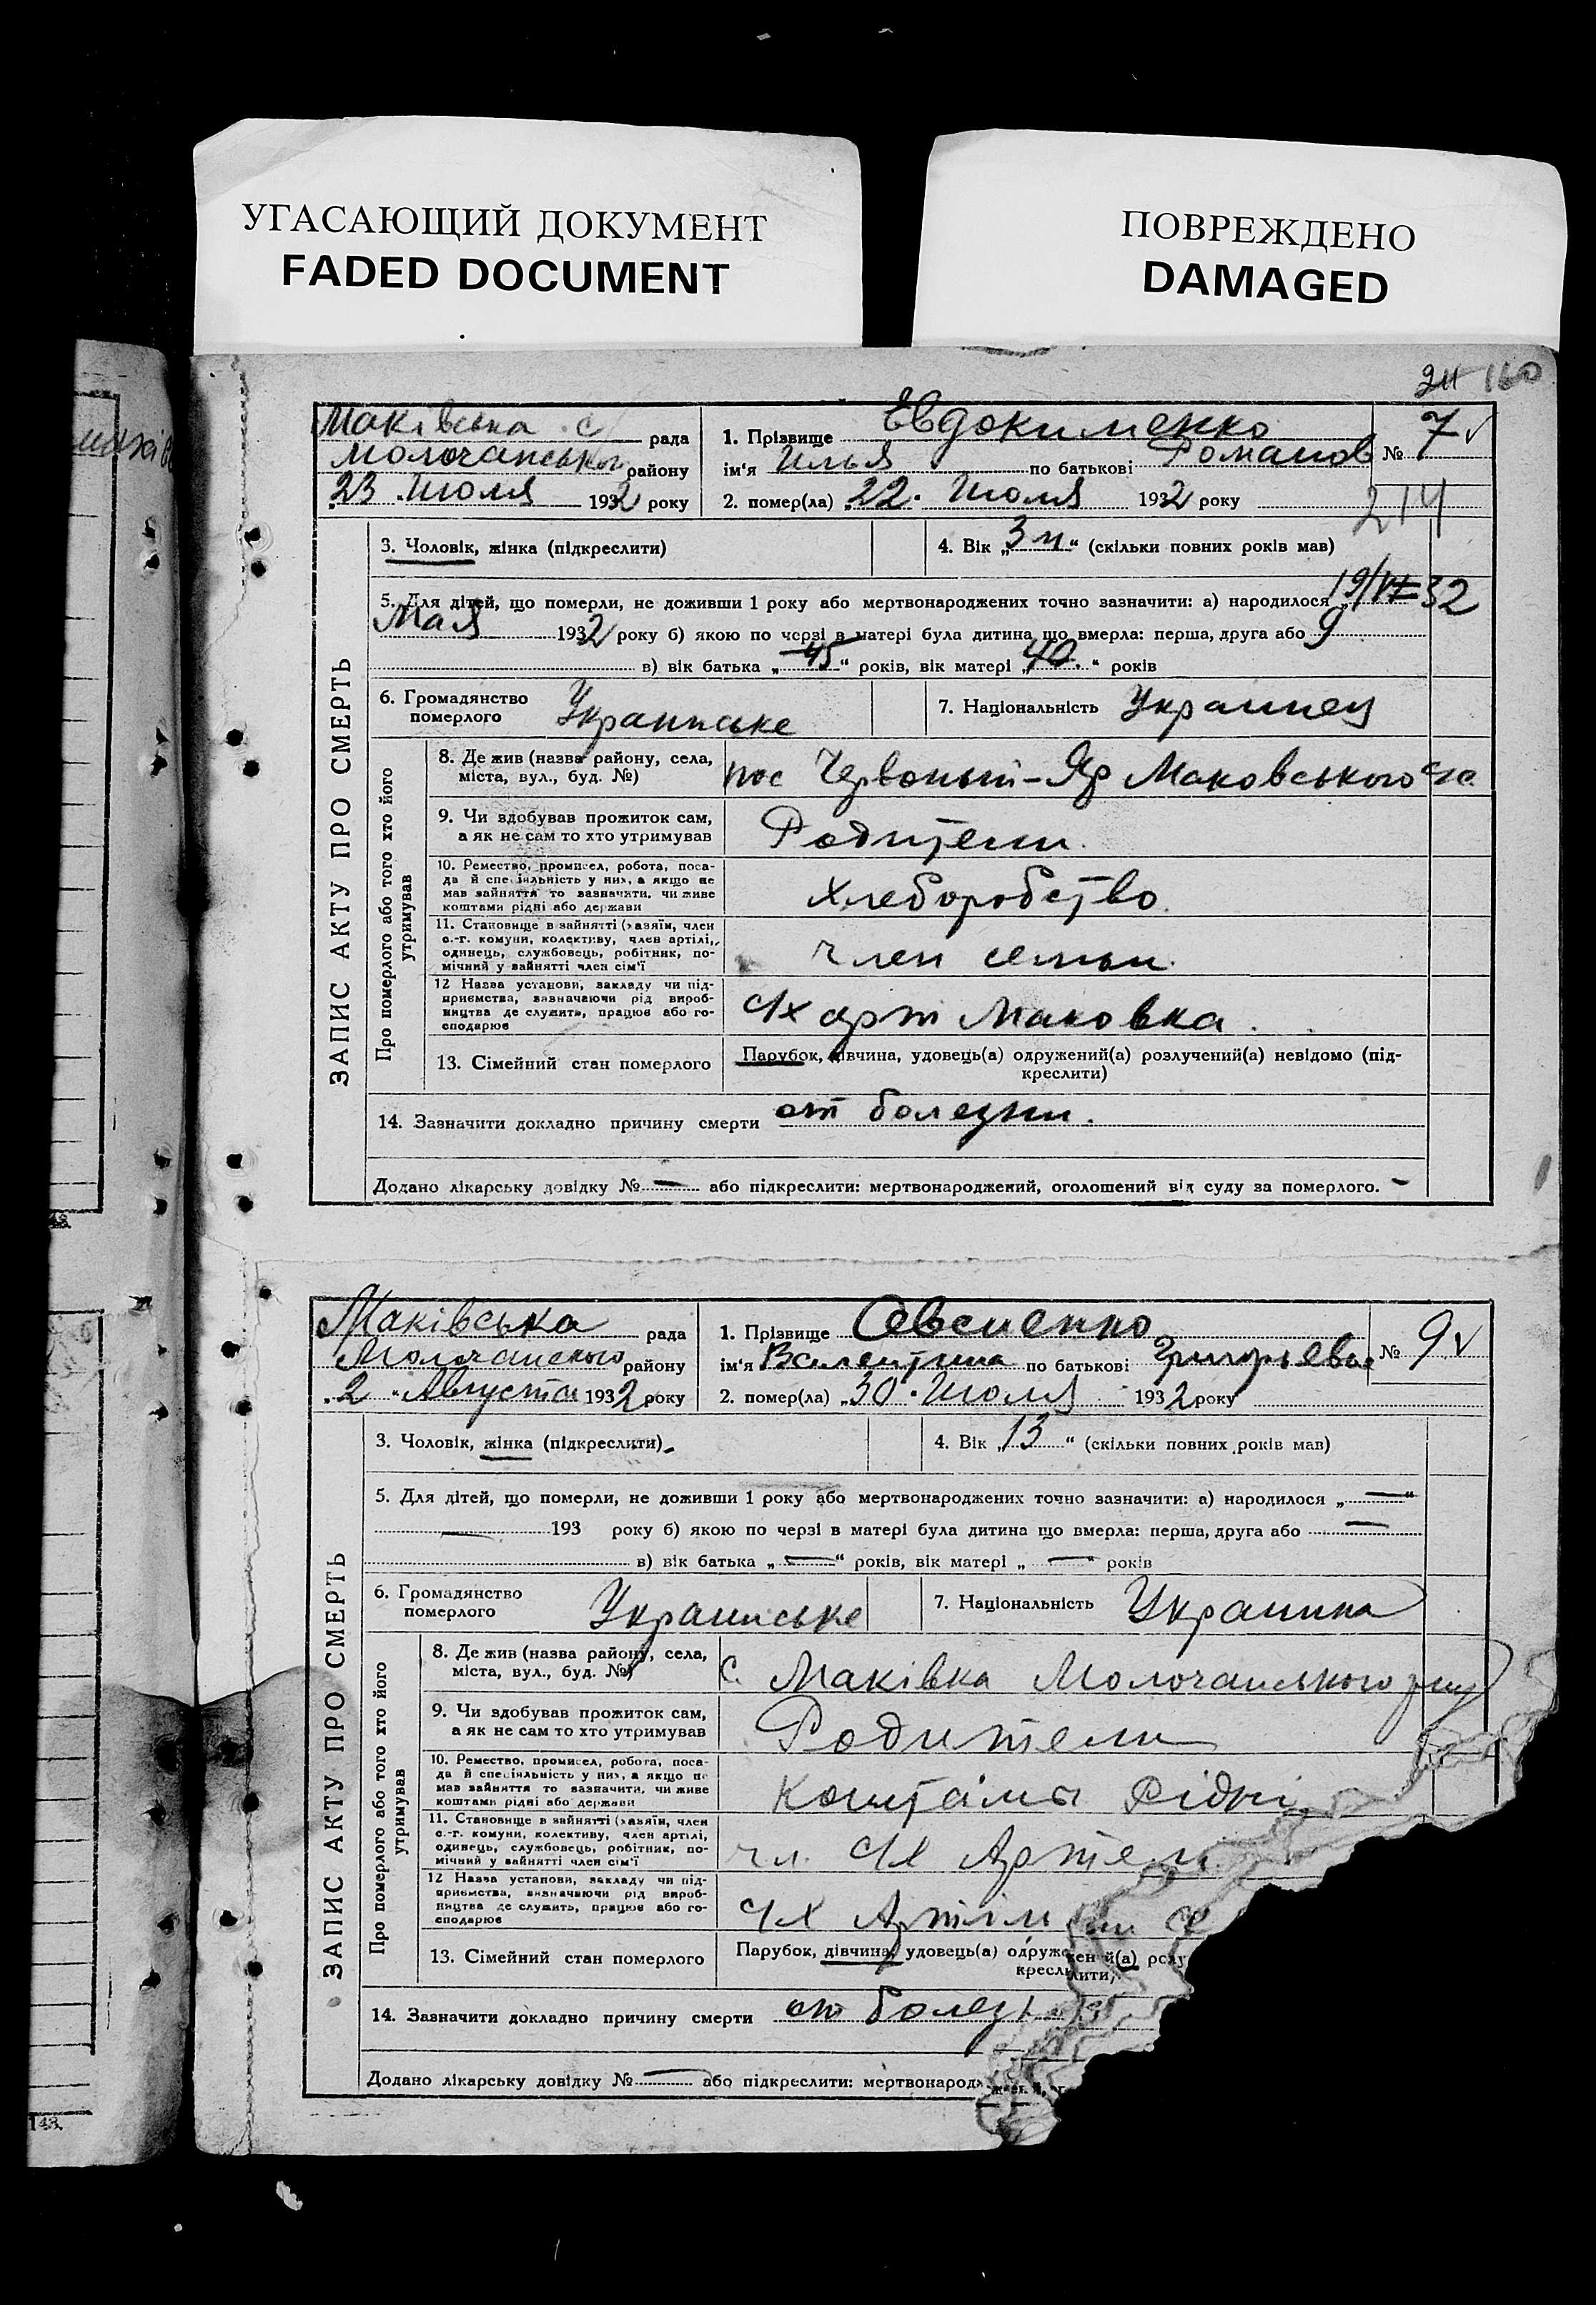 УГАСАЮЩИЙ ДОКУМЕНТ
FADED DOCUMENT
ПОВРЕЖДЕНО
DAMAGED
160
Маківська с рада
Молочанського району
„23 Июля 1932 року
1. Прізвище Евдокименко
ім'я Илья по батькові Романов
№ 7
2. помер(ла) „22" Июля 1932 року
214
ЗАПИС АКТУ ПРО СМЕРТЬ
3. Чоловік, жінка (підкреслити)
4. Вік „3 м" (скільки повних років мав)
5. Для дітей, що померли, не доживши 1 року або мертвонароджених точно зазначити: а) народилося „19/VI 32
Мая 1932 року б) якою по черзі в матері була дитина що вмерла: перша, друга або 9
в) вік батька „45" років, вік матері „40" років
6. Громадянство
померлого
Украинське
7. Національність Украинец
Про померлого або того хто його
утримував
8. Де жив (назва району, села,
міста, вул., буд. №)
пос Червоный-Яр Маковського с/с
9. Чи здобував прожиток сам,
а як не сам то хто утримував
Родители.
10. Ремество, промисел, робота, поса-
да й спеціяльність у них, а якщо не
мав зайняття то зазначити, чи живе
коштами рідні або держави
Хлеборобство.
11. Становище в зайнятті (хазяїн, член
с.-г. комуни, колективу, член артілі,
одинець, службовець, робітник, по-
мічний у зайнятті член сім'ї
член семьи.
12 Назва установи, закладу чи під-
приємства, зазначаючи рід вироб-
ництва де служить, працює або го-
сподарює
с/х арт Маковка.
13. Сімейний стан померлого
Парубок, дівчина, удовець(а) одружений(а) розлучений(а) невідомо (під-
креслити)
14. Зазначити докладно причину смерти от болезни.
Додано лікарську довідку № — або підкреслити: мертвонароджений, оголошений від суду за померлого. –
Маківська рада
Молочанского району
„2 „Августа 1932 року
1. Прізвище Овсиенко
ім'я Валентина по батькові Григорьевна
№ 9
2. помер(ла) „30" Июля 1932 року
ЗАПИС АКТУ ПРО СМЕРТЬ
3. Чоловік, жінка (підкреслити)
4. Вік „13" (скільки повних років мав)
5. Для дітей, що померли, не доживши 1 року або мертвонароджених точно зазначити: а) народилося „—"
— 193 року б) якою по черзі в матері була дитина що вмерла: перша, друга або —
в) вік батька „—" років, вік матері „—" років
6. Громадянство
померлого
Украинське
7. Національність Украинка
Про померлого або того хто його
утримував
8. Де жив (назва району, села,
міста, вул., буд. №)
с. Маківка Молочанського
9. Чи здобував прожиток сам,
а як не сам то хто утримував
Родители
10. Ремество, промисел, робота, поса-
да й спеціяльність у них, а якщо не
мав зайняття то зазначити, чи живе
коштами рідні або держави
Коштамы рідні
11. Становище в зайнятті (хазяїн, член
с.-г. комуни, колективу, член артілі,
одинець, службовець, робітник, по-
мічний у зайнятті член сім'ї
чл. с/х Артели
12 Назва установи, закладу чи під-
приємства, зазначаючи рід вироб-
ництва де служить, працює або го-
сподарює
с/х
13. Сімейний стан померлого
Парубок, дівчина, удовець(а) одружений(а) розлу
креслити)
14. Зазначити докладно причину смерти от болез
Додано лікарську довідку № — або підкреслити: мертвонародж
143.